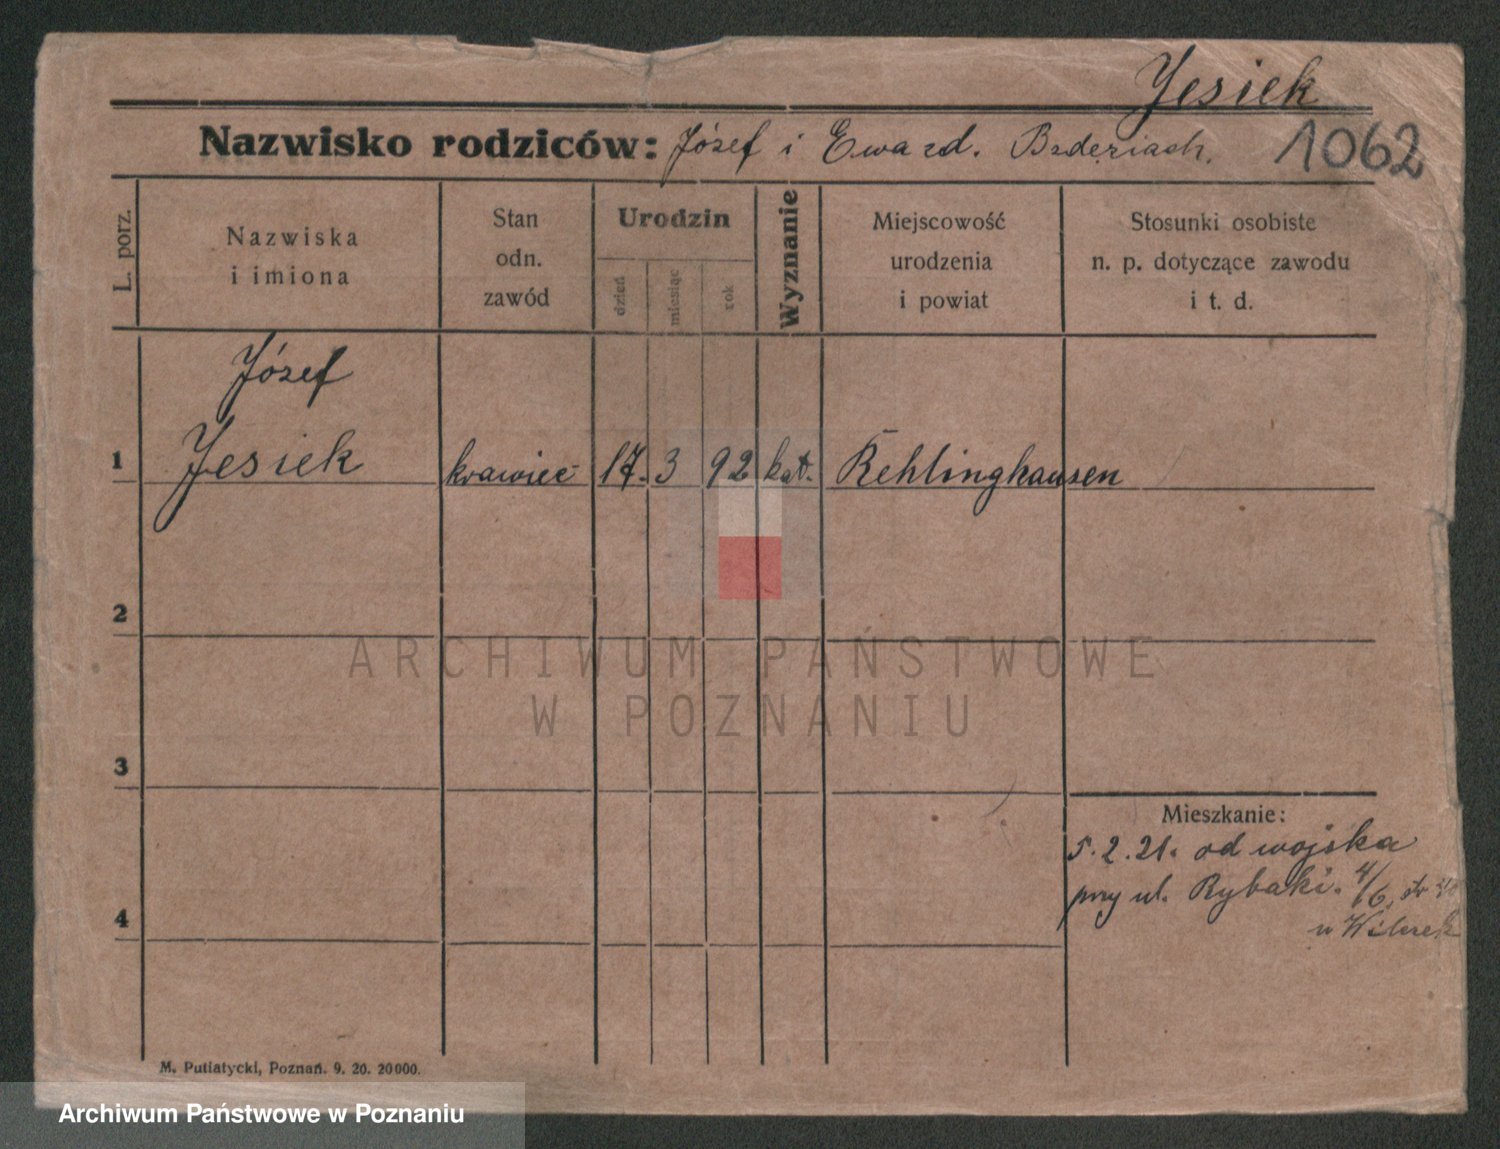 Jesiek
Nazwisko rodziców: Józef i Ewa zd.
1062
L. porz.
Nazwiska
i imiona
Stan
odn.
zawód
Urodzin
dzień
miesiąc
rok
Wyznanie
Miejscowość
urodzenia
i powiat
Stosunki osobiste
n. p. dotyczące zawodu
i t. d.
Józef
1 Jesiek krawiec 17. 3 92 kat. Rehlinghausen
2
3
4
Mieszkanie:
5.2.21. od wojska
przy ul. Rybaki. 4/6,
u
M. Putiatycki, Poznań. 9. 20. 20000.
ARCHIWUM PAŃSTWOWE
W POZNANIU
Archiwum Państwowe w Poznaniu